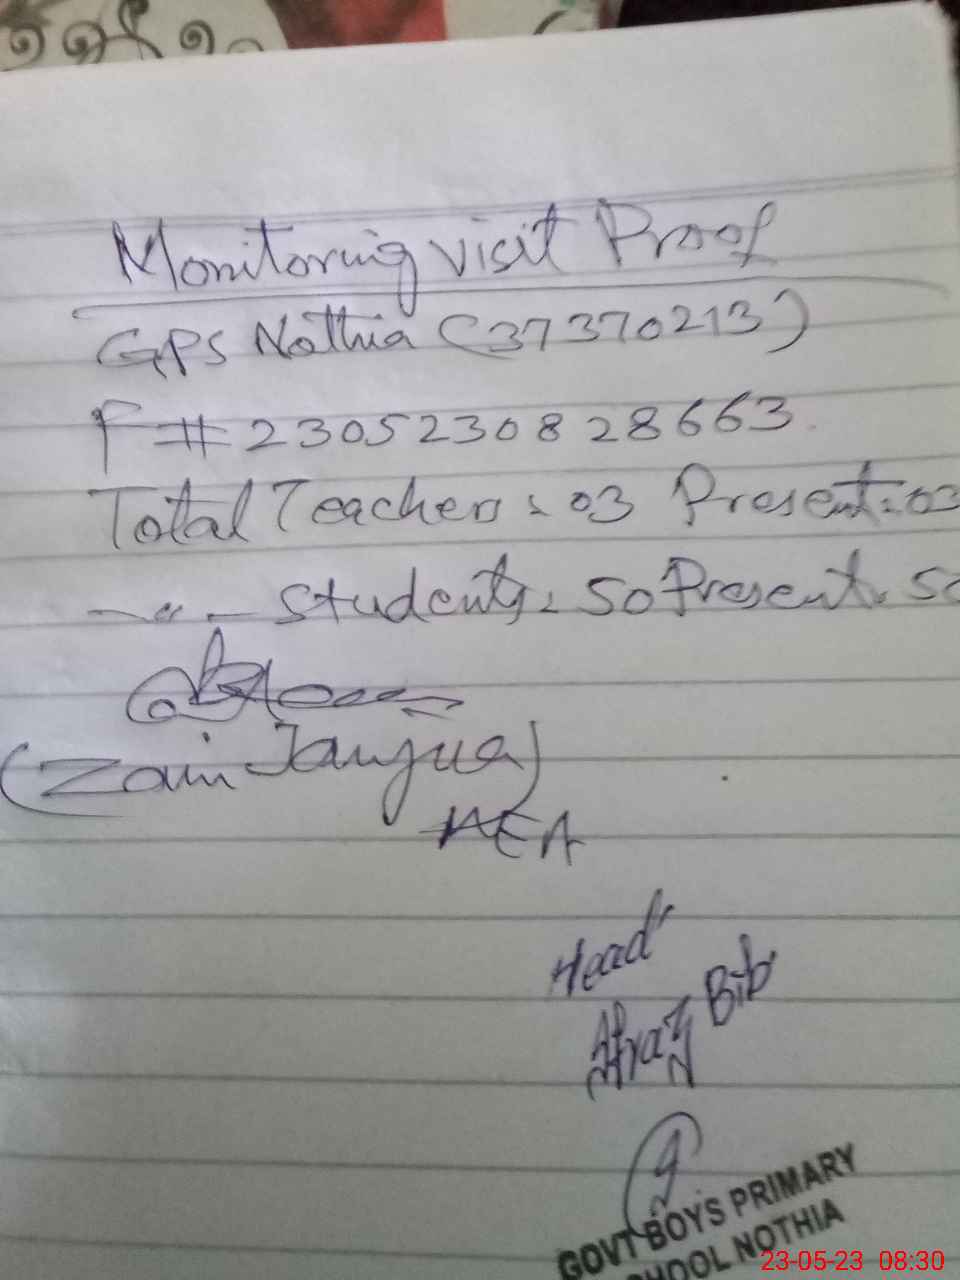 Monitoring visit Proof
GPS Nothia (37370213)
F # 2305230828663
Total Teachers = 03 Present = 03
—〃— Students = 50 Present = 50
(Zain Janjua)
AEA
Head
Afraz Bibi
GOVT BOYS PRIMARY
SCHOOL NOTHIA
23-05-23 08:30